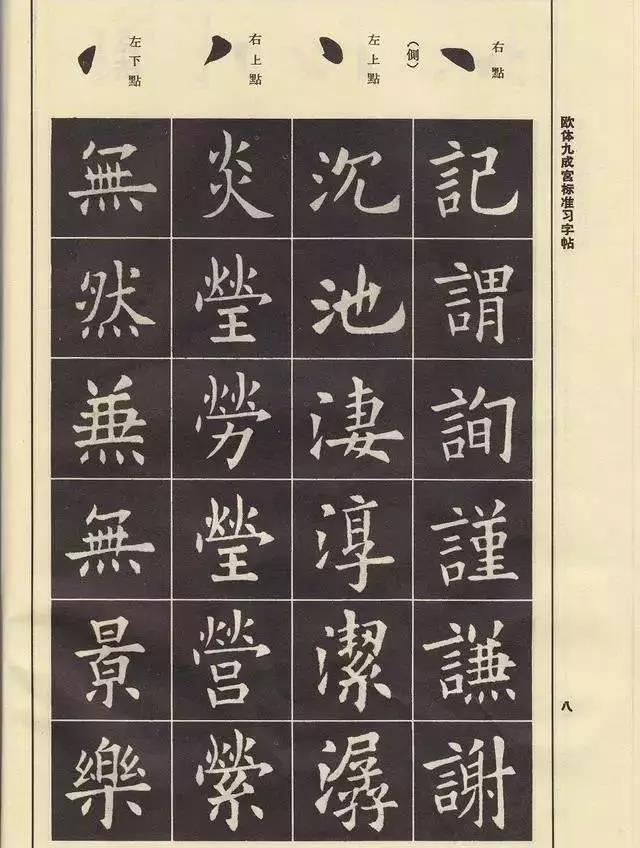 欧体九成宫标准习字帖
八
右點
記謂詢謹謙謝
(側)
左上點
沉池淒淳潔潺
右上點
炎瑩勞瑩營縈
左下點
無然兼無景樂